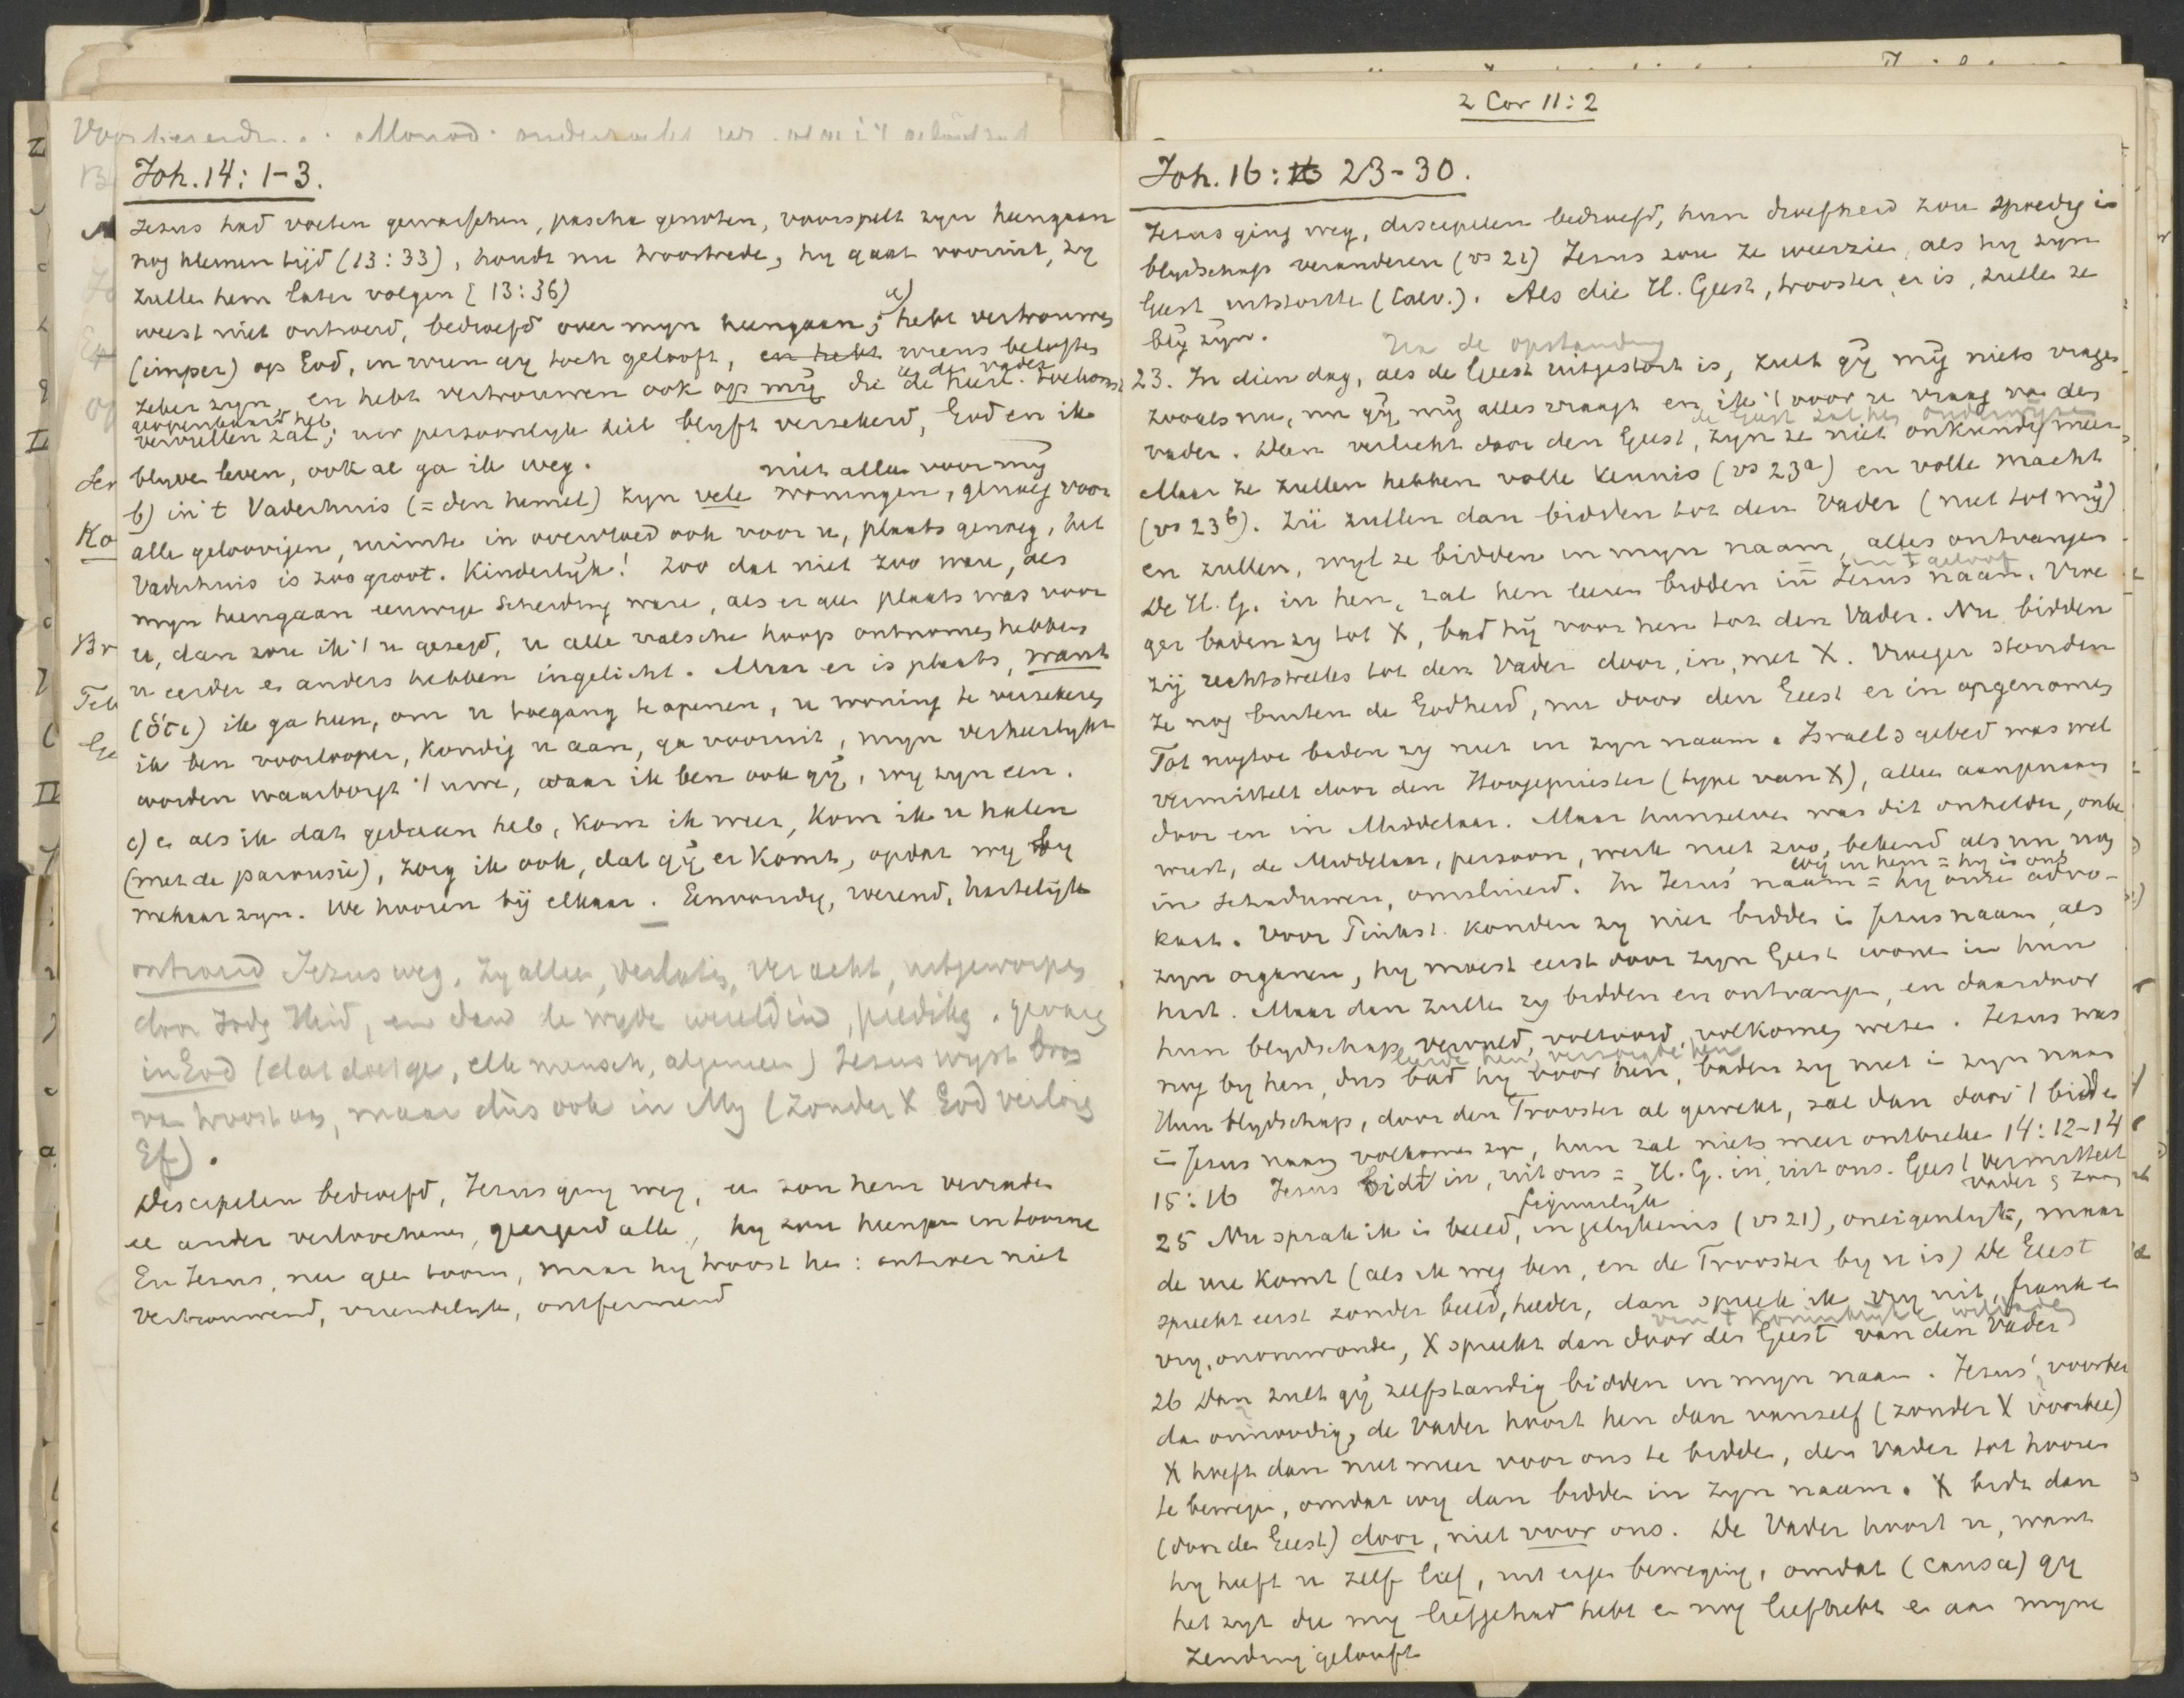 2 Cor 11:2
Joh. 14: 1-3.
Jezus had voeten gewasschen, pascha genoten, voorspelt zijn heengaan
nog kleinen tijd (13:33), houdt nu troostrede, hy gaat vooruit, zy
zullen hem later volgen [13:36)
a)
weest niet ontroerd, bedroefd over myn heengaan; hebt vertrouwen
(imper) op God, in wien gy toch gelooft, en hebt wiens beloften
zeker zyn en hebt vertrouwen ook op mij die de
u de vader
geopenbaard heb
vervullen zal; uw persoonlyk heil blyft verzekerd, God en ik
blyve leven, ook al ga ik weg.
niet alleen voor mij
b) in 't Vaderhuis (= den hemel) zyn vele woningen, genoeg voor
alle geloovigen, ruimte in overvloed ook voor u, plaats genoeg, het
Vaderhuis is zoo groot. Kinderlijk! Zoo dat niet zoo ware, als
myn heengaan eeuwige scheiding ware, als er geen plaats was voor
u, dan zou ik 't u gezegd, u alle valsche hoop ontnomen hebben
u eerder en anders hebben ingelicht. Maar er is plaats, want
(ὅτι) ik ga heen, om u toegang te openen, u woning te verzekeren
ik ben voorlooper, kondig u aan, ga vooruit, myn verheerlykt
worden waarborgt 't uwe, waar ik ben ook gij, wy zyn een.
c) en als ik dat gedaan heb, kom ik weer, kom ik u halen
(met de parousie), zorg ik ook, dat gij er komt, opdat wy by
mekaar zyn. We hooren bij elkaar. Eenvoudig, roerend, hartelijk
ontroerd Jezus weg, zy alleen, verlaten, veracht, uitgeworpen
door Jodg Heid, en dan de wyde wereld in, prediking. gevaar
in God (dat doet ge, elk mensch, algemeen) Jezus wyst bron
van troost aan, maar dus ook in My (zonder X God verlorg
Ef).
Discipelen bedroefd, Jezus ging weg, een zou hem verraden
een ander verloochenen, geergerd alle, hy zou heengaan in toorne
En Jezus, nu geen toorn, maar hy troost hen: ontroer niet
Vertrouwend, vriendelyk, ontfermend
Joh. 16: 16 23-30.
Jezus ging weg, discipelen bedroefd, hun droefheid zou spoedig in
blydschap veranderen (vs 22) Jezus zou ze weerzien, als hy zyn
Geest uitstortte (Calv.). Als die H. Geest, trooster, er is, zullen ze
bly zyn.
Na de opstanding
23. In dien dag, als de Geest uitgestort is, zult gij mij niets vragen
zooals nu, nu gij mij alles vraagt en ik 't voor u vraag van den
de Geest zal hen onderwijzen
vader. Dan verlicht door den Geest, zyn ze niet onkundig meer
Maar ze zullen hebben volle kennis (vs 23a) en volle macht
(vs 23b). Zij zullen dan bidden tot den Vader (niet tot mij)
en zullen, wyl ze bidden in myn naam, alles ontvangen
in 't geloof
De H. G. in hen, zal hen leeren bidden in Jezus' naam. Vroe
ger baden zy tot X, bad hij voor hen tot den Vader. Nu bidden
zij rechtstreeks tot den Vader door, in, met X. Vroeger stonden
ze nog buiten de Godheid, nu door den Geest er in opgenomen
Tot nogtoe baden zy niet in zyn naam. Israels gebed was wel
vermittelt door den Hoogepriester (type van X), alleen aangenaam
door en in Middelaar. Maar hunzelven was dit onhelder, onbe
wust, de Middelaar, persoon, werk niet zoo bekend als nu, nog
wij in hem = hy in ons
in schaduwen, omsluierd. In Jezus' naam = hy onze advo-
kaat. Voor Pinkst. konden zy niet bidden in Jezus naam, als
zyn organen, hy moest eerst door zyn Geest wonen in hun
hart. Maar dan zullen zy bidden en ontvangen, en daardoor
hun blydschap vervuld, voltooid, volkomen wezen. Jezus was
leerde hen, verzorgde hen
nog by hen, dus bad hy voor hen, baden zy niet in zyn naam
Hun blydschap, door den Trooster al gewekt, zal dan door 't bidden
in Jezus naam volkomen zyn, hun zal niets meer ontbreken 14:12-14
15:16 Jezus bidt in, uit ons = H. G. in, uit ons. Geest vermittelt
Vader & zoon
figuurlijk
25 Nu sprak ik in beeld, in gelykenis (vs 21), oneigenlyk, maar
de ure komt (als ik weg ben, en de Trooster by u is) De Geest
spreekt eerst zonder beeld, helder, dan spreek ik vry uit, frank en
van 't Koninklijke
vry, onomwonden, X spreekt dan door den Geest van den Vader
26 Dan zult gij zelfstandig bidden in myn naam. Jezus' voorbee
dan onnoodig, de Vader hoort hen dan vanzelf (zonder X voorbee)
X hoeft dan niet meer voor ons te bidden, den Vader tot hooren
te bewegen, omdat wy dan bidden in zyn naam. X bidt dan
(door den Geest) door, niet voor ons. De Vader hoort u, want
hy heeft u zelf lief, uit eigen beweging, omdat (causa) gy
het zyt die my liefgehad hebt en nog liefhebt en aan myne
zending gelooft